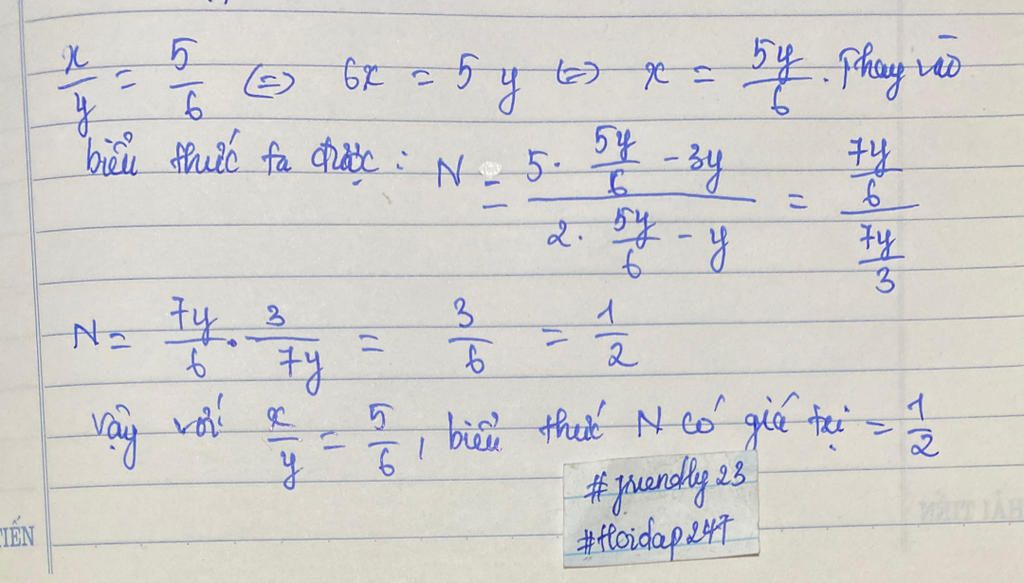 x/y = 5/6 (=) 6x = 5y (=) x = 5y/6. Thay vào
biểu thức ta được: N = (5. 5y/6 - 3y)/(2. 5y/6 - y) = (7y/6)/(7y/3)
N = 7y/6 . 3/7y = 3/6 = 1/2
Vậy với x/y = 5/6, biểu thức N có giá trị = 1/2
#friendly23
#Hoidap247
TIẾN
HẢI TIẾN